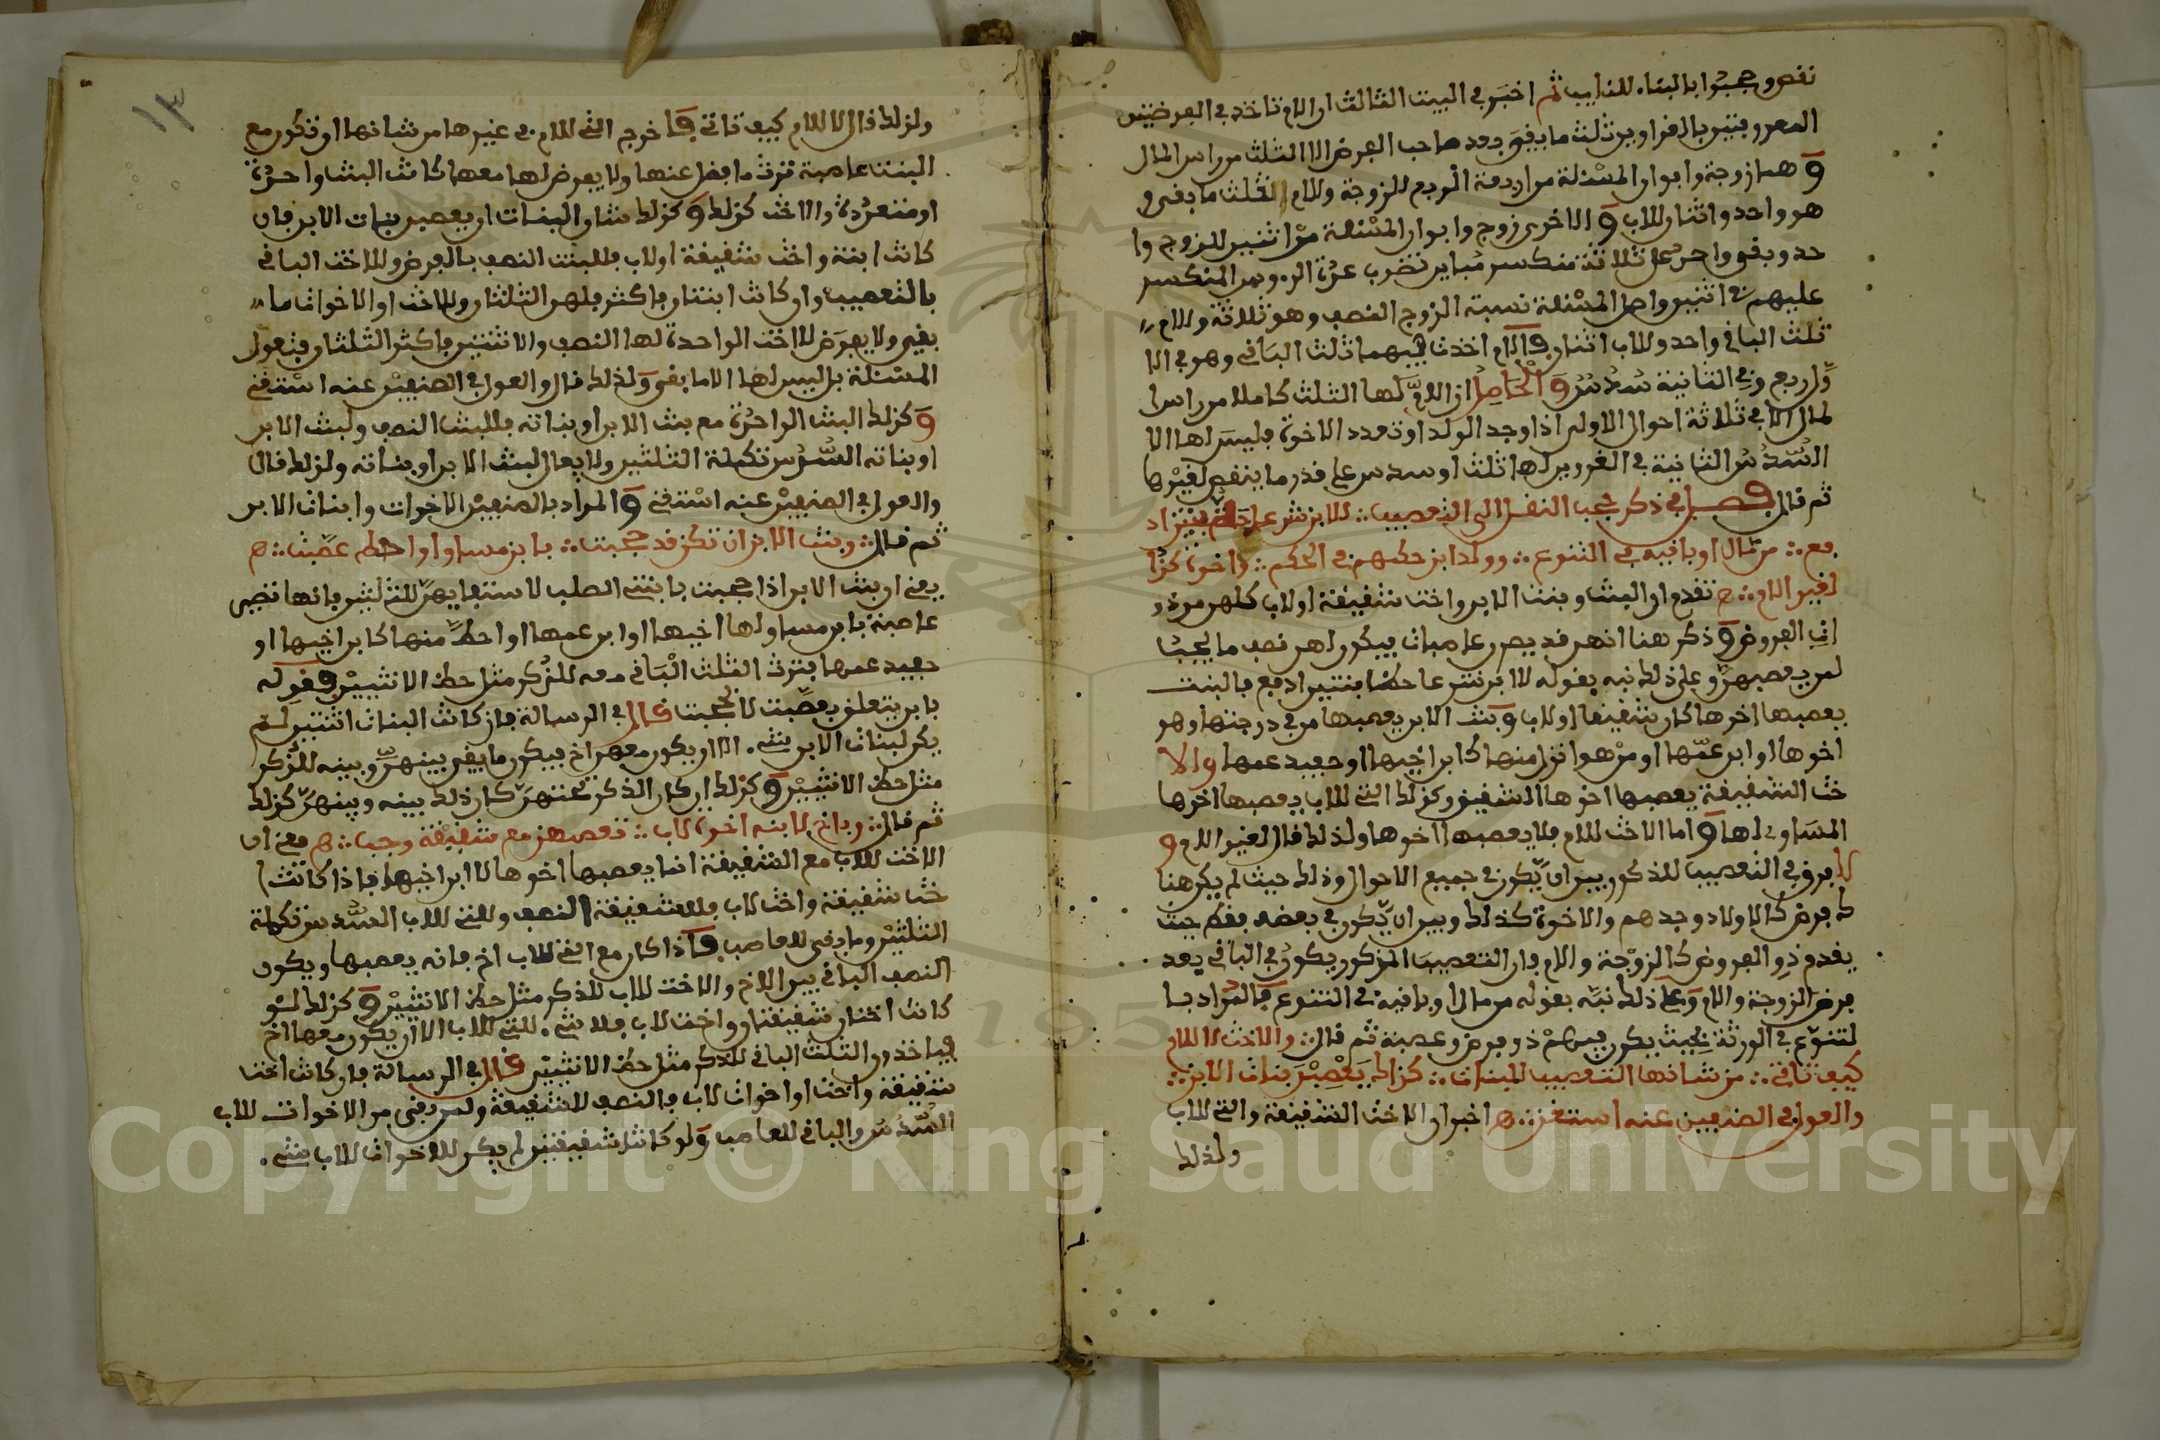 نقص وحجبوا بالبناء للنايب ثم اخبر في البيت الثالث ان الام تاخذ في الفرضيتين
المعروفتين بالغراوين ثلث ما يبقى بعد صاحب الفرض لا الثلث من راس المال
و هما زوجة وابوان المسئلة من اربعة الربع للزوجة وللام ثلث ما بقي و
هو واحد واثنان للاب و الاخرى زوج وابوان المسئلة من اثنين للزوج وا
حد وبقي واحد على ثلاثة منكسر مباين تضرب عدة الرءوس المنكسر
عليهم في اثنين واصل المسئلة نسبة الزوج النصف وهو ثلاثة وللام
ثلث الباقي واحد وللاب اثنان فالام اخذت فيهما ثلث الباقي وهو في الا
ولى ربع وفي الثانية سدس و الحاصل ان الام لها الثلث كاملا من راس
لمال الا في ثلاثة احوال الاولى اذا وجد الولد او تعدد الاخوة فليس لها الا
السدس الثانية في الغروين لها ثلث او سدس على قدر ما ينقص لغيرها
ثم قال فصل في ذكر حجب النقل الى التعصيب للابن شرعا حظ بنتين اد
فع من مال او باقيه في التنوع وولد ابن حكمهم في الحكم واخوة كذا
لغير الام ه تقدم ان البنت وبنت الابن واخت شقيقة او لاب كلهن من ذو
اتي الفروض و ذكر هنا انهن قد يصرن عاصبات فيكون لهن نصف ما يجب
لمن يعصبهن وعلى ذلك نبه بقوله للابن شرعا حظ بنتين ادفع فالبنت
يعصبها اخوها كان شقيقا او لاب و بنت الابن يعصبها من في درجتها وهو
اخوها او ابن عمها او من هو انزل منها كابن اخيها او حفيد عمها والا
خت الشقيقة يعصبها اخوها الشقيق وكذلك التي للاب يعصبها اخوها
المساوي لها و اما الاخت للام فلا يعصبها اخوها ولذلك قال لغير الام و
لا فرق في التعصيب للذكور بين ان يكون في جميع الاحوال وذلك حيث لم يكن هنا
ك فرض كالاولاد وحدهم والاخوة كذلك وبين ان يكون في بعضه بحكم حيث
يقدم ذو الفروض كالزوجة والام فان التعصيب المذكور يكون في الباقي بعد
فرض الزوجة والام وعلى ذلك نبه بقوله من مال او باقيه في التنوع فالمراد با
لتنوع في الورثة بحيث يكون فيهم ذو فرض وعصبة ثم قال والاخت لا للام
كيف تاتي من شانها التعصيب للبنات كذاك يعصبن بنات الابن
والعول في الضعيف عنه استغن ه اخبر ان الاخت الشقيقة والتي للاب
ولذلك
١٣
ولذلك قال لا للام كيف تاتي فاخرج التي للام في غيرها من شانها ان تكون مع
البنت عاصبة ترث ما فضل عنها ولا يفرض لها معها كانت البنت واحدة
او متعددة والاخت كذلك و كذلك شان البنات ان يعصبن بنات الابن فان
كانت ابنة واخت شقيقة او لاب فللبنت النصف بالفرض وللاخت الباقي
بالتعصيب وان كانت ابنتان فاكثر فلهن الثلثان وللاخت او الاخوات ما
بقي ولا يفرض للاخت الواحدة لها النصف والاثنتين فاكثر الثلثان فتعول
المسئلة بل ليس لها الا ما بقي ولذلك قال والعول في الضعيف عنه استغني
و كذلك البنت الواحدة مع بنت الابن او بناته فللبنت النصف ولبنت الابن
او بناته السدس تكملة الثلثين ولا يعال لبنت الابن او بناته ولذلك قال
والعول في الضعيف عنه استغني و المراد بالضعيف الاخوات وابنات الابن
ثم قال وبنت الابن ان تكن قد حجبت بابن مساو او احط عصبت ه
يعني ان بنت الابن اذا حجبت بابنتي الصلب لاستيفايهن للثلثين فانها تصير
عاصبة بابن مساو لها اخيها او ابن عمها او احط منها كابن اخيها او
حفيد عمها فترث الثلث الباقي معه للذكر مثل حظ الانثيين وقوله
بابن يتعلق بعصبت لا بحجبت قال في الرسالة فان كانت البنات اثنتين لم
يكن لبنات الابن شيء الا ان يكون معهن اخ فيكون ما بقي بينهن وبينه للذكر
مثل حظ الانثيين و كذلك ان كان الذكر تحتهن كان ذلك بينه وبينهن كذلك
ثم قال وباخ لا ابنه اخوات لاب تعصبهن مع شقيقة وجب ه معنى ان
الاخت للاب مع الشقيقة انما يعصبها اخوها لا ابن اخيها فاذا كانت ا
خت شقيقة واخت لاب فللشقيقة النصف وللتي للاب السدس تكملة
الثلثين وما بقي للعاصب فاذا كان مع التي للاب اخ فانه يعصبها ويكون
النصف الباقي بين الاخ والاخت للاب للذكر مثل حظ الانثيين و كذلك لو
كانت اختان شقيقتان واخت لاب فلا شيء للتي للاب الا ان يكون معها اخ
فياخذون الثلث الباقي للذكر مثل حظ الانثيين قال في الرسالة فان كانت اختا
شقيقة واختا او اخوات لاب فالنصف للشقيقة ولمن بقي من الاخوات للاب
السدس والباقي للعاصب ولو كانتا شقيقتين لم يكن للاخوات للاب شيء
Copyright © King Saud University
1957